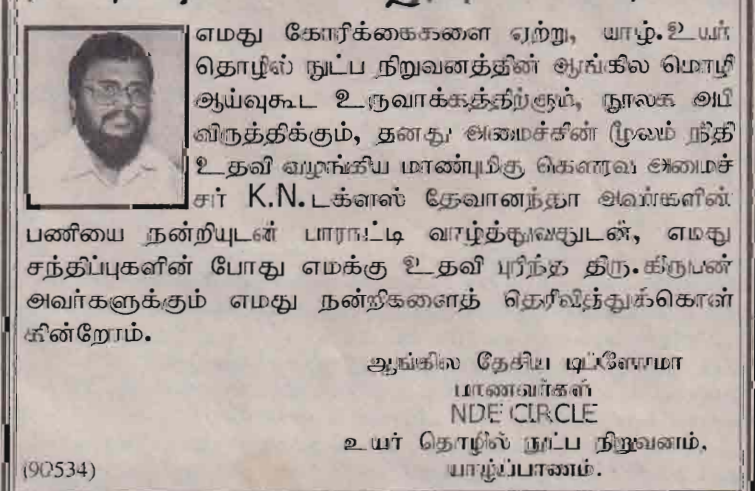 எமது கோரிக்கைகளை ஏற்று, யாழ்.உயர்
தொழில் நுட்ப நிறுவனத்தின் ஆங்கில மொழி
ஆய்வுகூட உருவாக்கத்திற்கும், நூலக அபி
விருத்திக்கும், தனது அமைச்சின் மூலம் நிதி
உதவி வழங்கிய மாண்புமிகு கௌரவ அமைச்
சர் K.N.டக்ளஸ் தேவானந்தா அவர்களின்
பணியை நன்றியுடன் பாராட்டி வாழ்த்துவதுடன், எமது
சந்திப்புகளின் போது எமக்கு உதவி புரிந்த திரு.கிருபன்
அவர்களுக்கும் எமது நன்றிகளைத் தெரிவித்துக்கொள்
கின்றோம்.
ஆங்கில தேசிய டிப்ளோமா
மாணவர்கள்
NDE CIRCLE
உயர் தொழில் நுட்ப நிறுவனம்,
(90534) யாழ்ப்பாணம்.